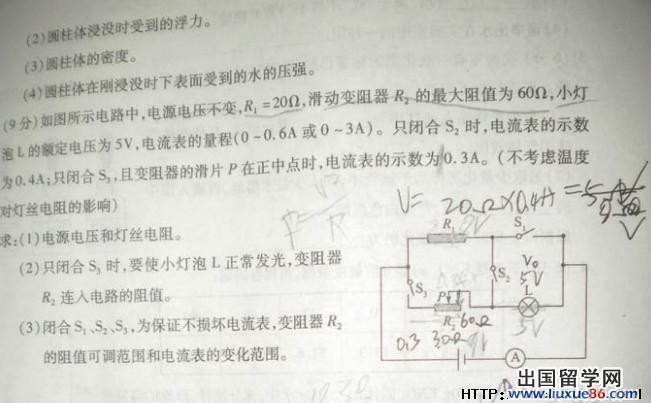 (2)圆柱体浸没时受到的浮力。
(3)圆柱体的密度。
(4)圆柱体在刚浸没时下表面受到的水的压强。
(9分)如图所示电路中,电源电压不变,R₁=20Ω,滑动变阻器 R₂ 的最大阻值为 60Ω,小灯
泡 L 的额定电压为 5V,电流表的量程(0~0.6A 或 0~3A)。只闭合 S₂ 时,电流表的示数
为0.4A;只闭合 S₃,且变阻器的滑片 P 在正中点时,电流表的示数为0.3A。(不考虑温度
对灯丝电阻的影响)
V= 20Ω×0.4A =
求:(1)电源电压和灯丝电阻。
(2)只闭合 S₃ 时,要使小灯泡 L 正常发光,变阻器
R₂ 连入电路的阻值。
(3)闭合 S₁、S₂、S₃,为保证不损坏电流表,变阻器 R₂
的阻值可调范围和电流表的变化范围。
R₁
S₁
S₃
S₂
V₀
5V
P
L
R₂ 60Ω
5V
0.3
30Ω
9V
A
出国留学网
HTTP:
www.liuxue86.com